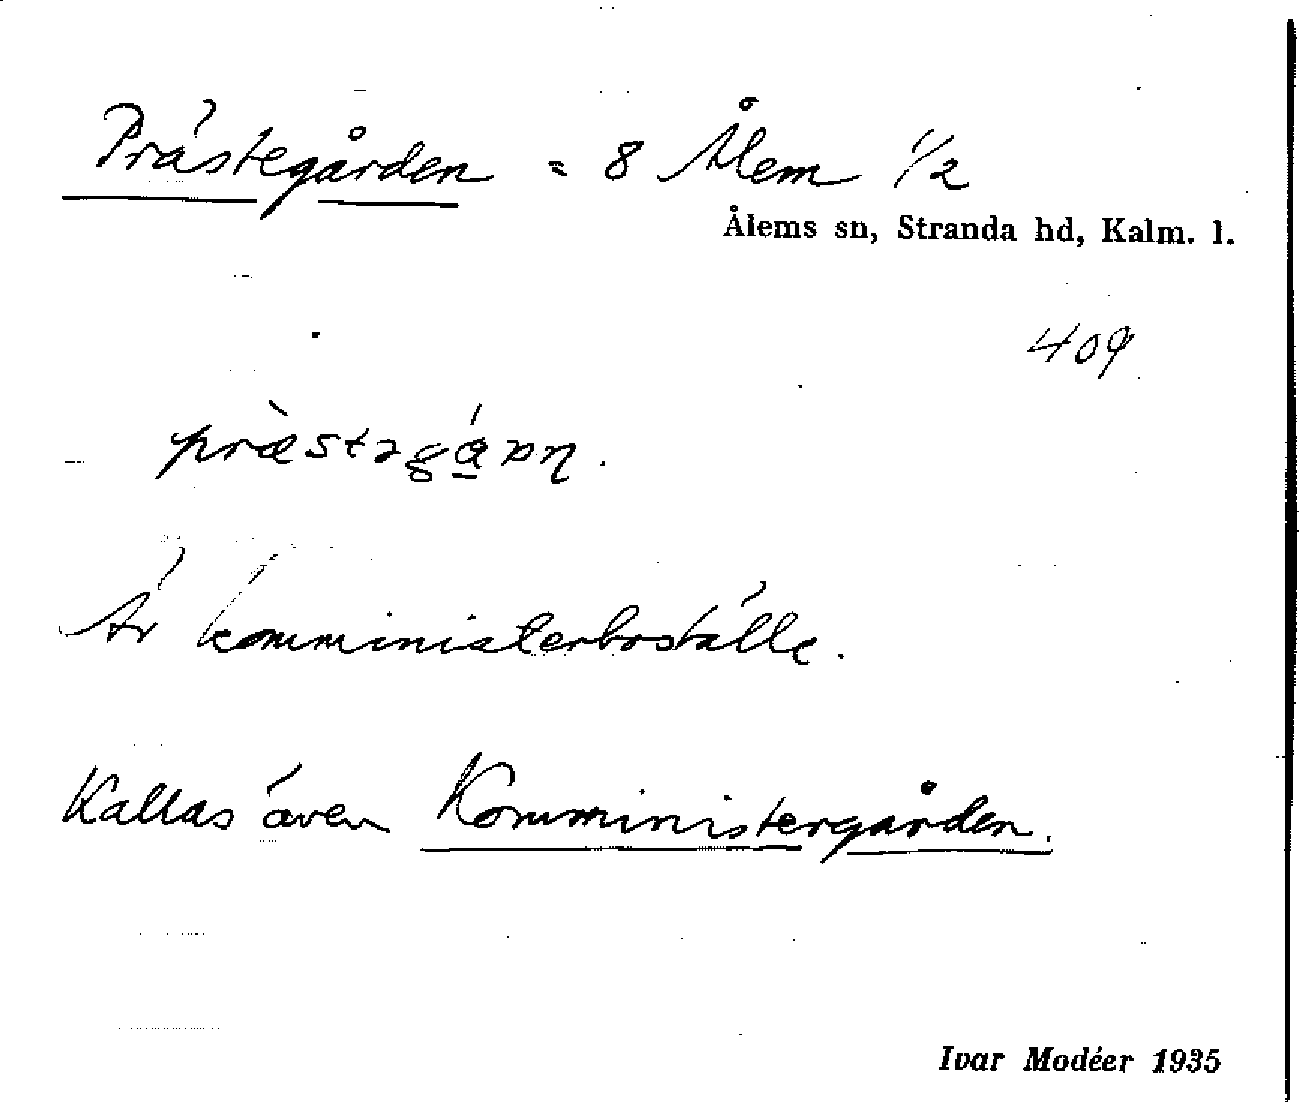 Prästegården = 8 Ålem 1/2
Ålems sn, Stranda hd, Kalm. l.
409
Är komministerboställe.
Kallas även Komministergården.
Ivar Modéer 1935